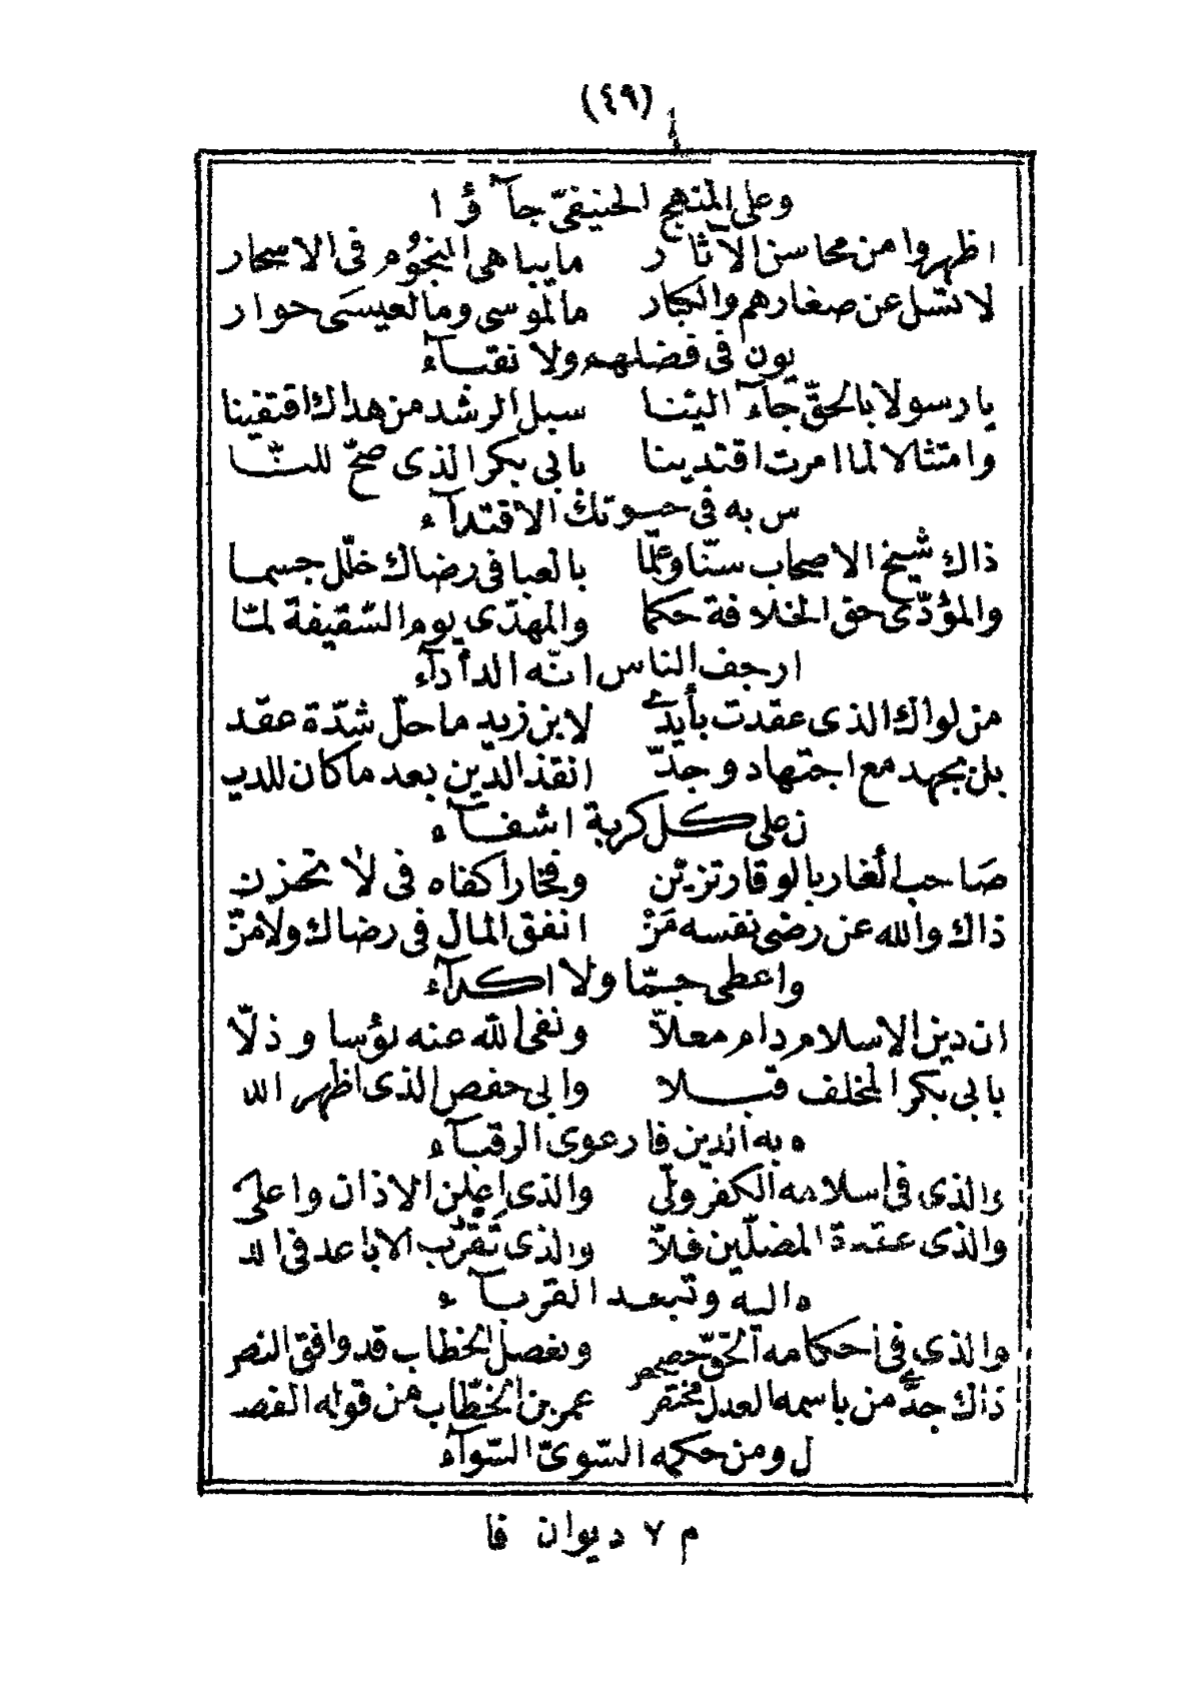 (٤٩)
وعلى المنهج الحنيفيّ جآؤا
اظهروا من محاسن الآثار مايباهى النجوم فى الاسحار
لا تسل عن صغارهم والكبار مالموسى ومالعيسى حوار
يون فى فضلهم ولا نقبآء
يا رسولا بالحقّ جآء الينا سبل الرشد من هداك اقتفينا
وامتثالا لما امرت اقتدينا بابى بكر الذى صحّ للنّا
س به فى حيوتك الاقتدآء
ذاك شيخ الاصحاب سنّا وعلما بالعبا فى رضاك خلّل جسما
والمؤدّى حق الخلافة حكما والمهدّى يوم السّقيفة لمّا
ارجف الناس انّه الدأدآء
من لواك الذى عقدت بأيدى لابن زيد ماحلّ شدّة عقد
بل بجهد مع اجتهاد وجدّ انقذ الدين بعد ماكان للدي
ن على كل كربة اشفآء
صاحب الغار بالوقار تزيّن وفخارا كفاه فى لا تحزن
ذاك والله عن رضى نفسه مَنْ انفق المال فى رضاك ولا منّ
واعطى جمّا ولا اكدآء
ان دين الاسلام دام معلاّ ونفى الله عنه بؤسا وذلاّ
بابى بكر المخلف قبلا وابى حفص الذى اظهر الله
ه به الدين فارعوى الرقبآء
والذى فى اسلامه الكفر ولّى والذى اعلن الاذان واعلى
والذى عقدة المضلّين فلاّ والذى تقرب الاباعد فى الله
ه اليه وتبعد القربآء
والذى فى أحكامه الحقّ حصحص وبفصل الخطاب قد وافق النصّ
ذاك جدّى من باسمه العدل مختصّ عمر بن الخطّاب من قوله الفص
ل ومن حكمه السّوىّ السّوآء
م ٧ ديوان فا